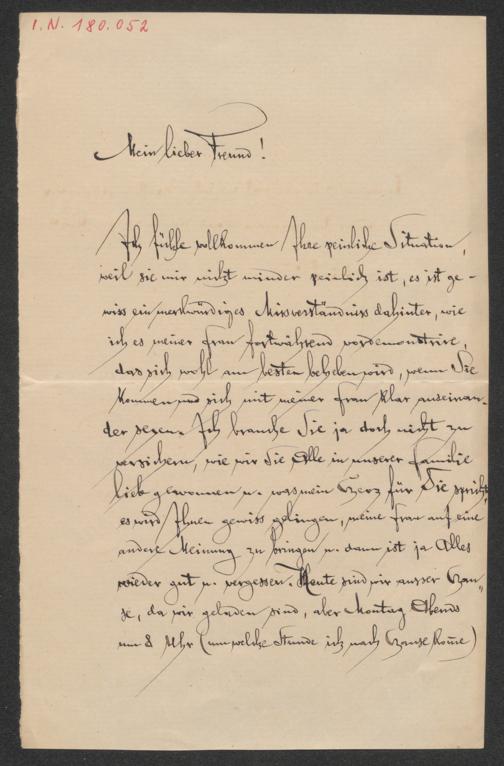 I.N. 180.052
Mein lieber Freund!
Ich fühle vollkommen Ihre peinliche Situation,
weil sie mir nicht minder peinlich ist, es ist ge-
wiss ein merkwürdiges Missverständniss dahinter, wie
ich es meiner Frau fortwährend vordemonstrire,
das sich wohl am besten beheben wird, wenn Sie
kommen und sich mit meiner Frau klar auseinan-
der sezen. Ich brauche Sie ja doch nicht zu
versichern, wie wir Sie Alle in unserer Familie
lieb gewonnen u. was mein Herz für Sie spricht,
es wird Ihnen gewiss gelingen, meine Frau auf eine
andere Meinung zu bringen u. dann ist ja Alles
wieder gut u. vergessen. Heute sind wir ausser Hau-
se, da wir geladen sind, aber Montag Abends
um 8 Uhr (um welche Stunde ich nach Hause kom̄e)